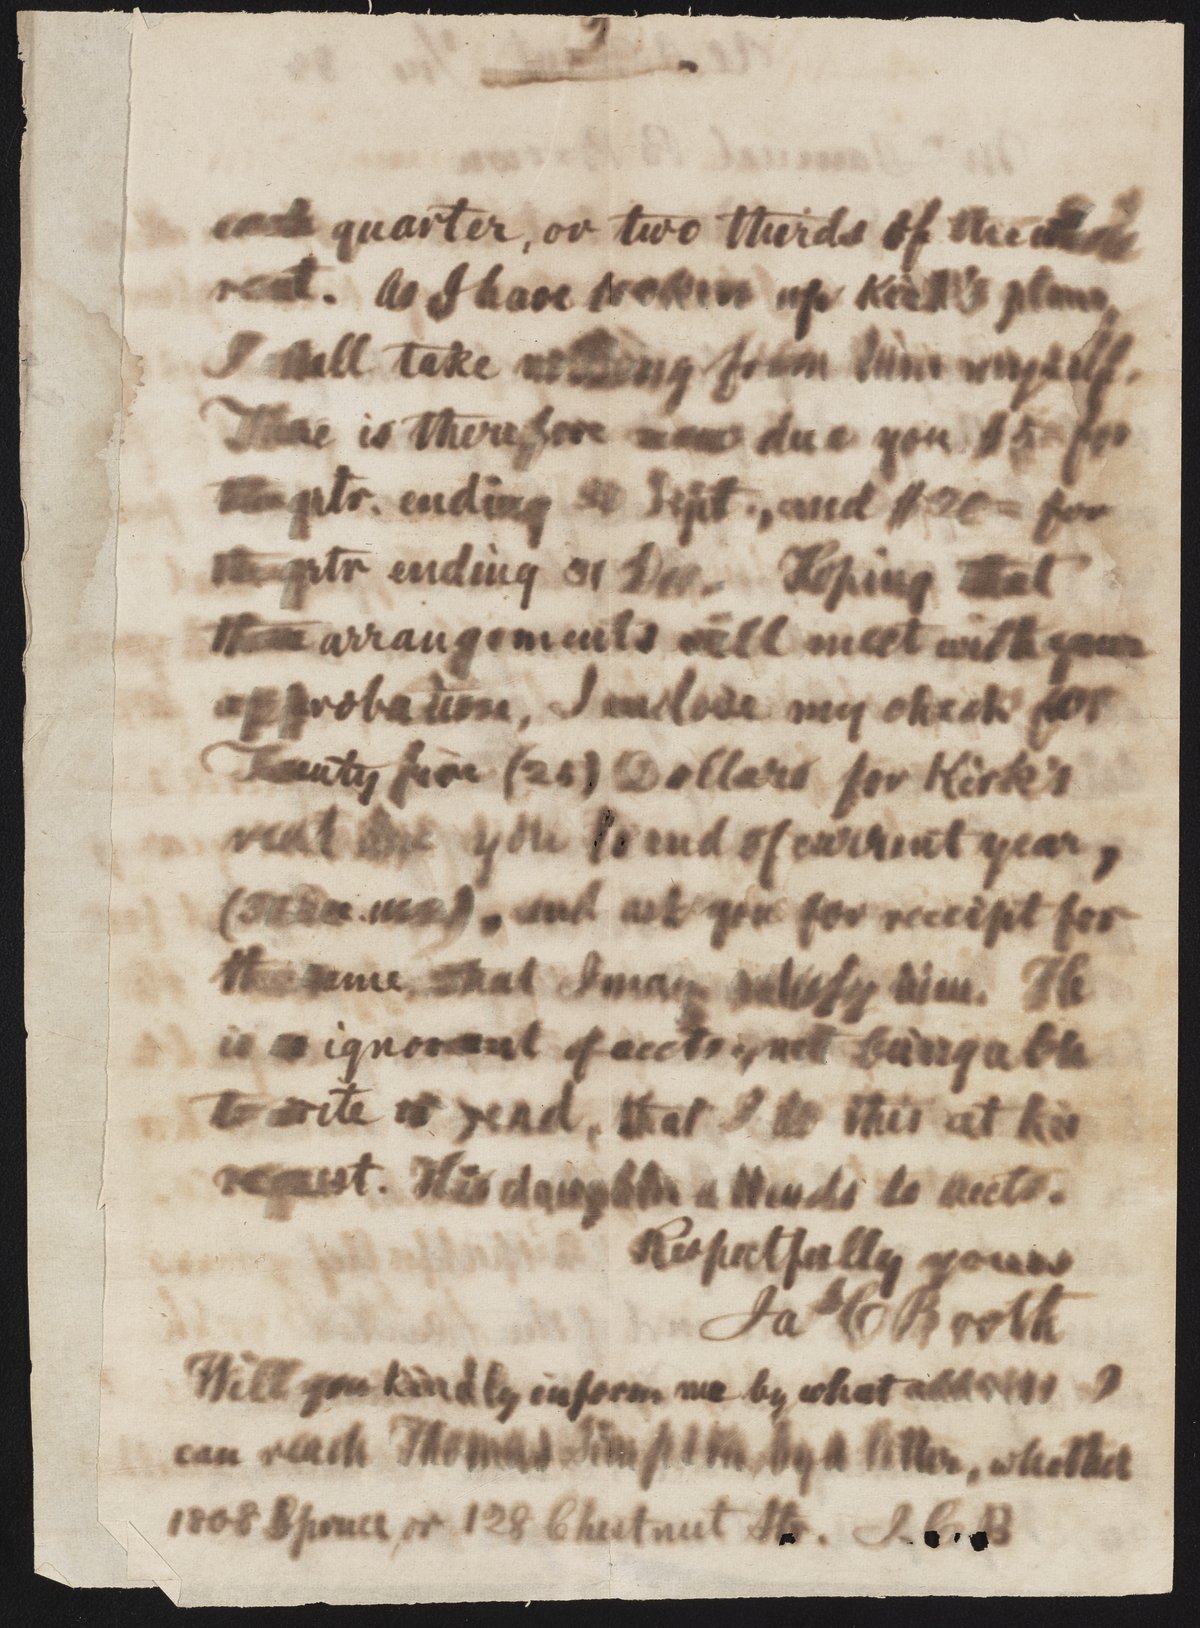 2
each quarter, or two thirds of the whole
rent. As I have broken up Kirk's plans,
I shall take nothing from him myself.
There is therefore now due you $5 for
the qrtr. ending 30 Sept., and $20 = for
the qrtr ending 31 Dec. Hoping that
these arrangements will meet with your
approbation, I inclose my check for
Twenty five (25) Dollars for Kirk's
rent due you to end of current year,
and ask you for receipt for
the same, that I may satisfy him. He
is so ignorant of accts, not being able
to write or read, that I do this at his
request. His daughter attends to accts.
Respectfully yours
Jas C Booth
Will you kindly inform me by what address I
can reach Thomas Simpson, by a letter, whether
1808 Spruce, or 128 Chestnut Str. J.C.B